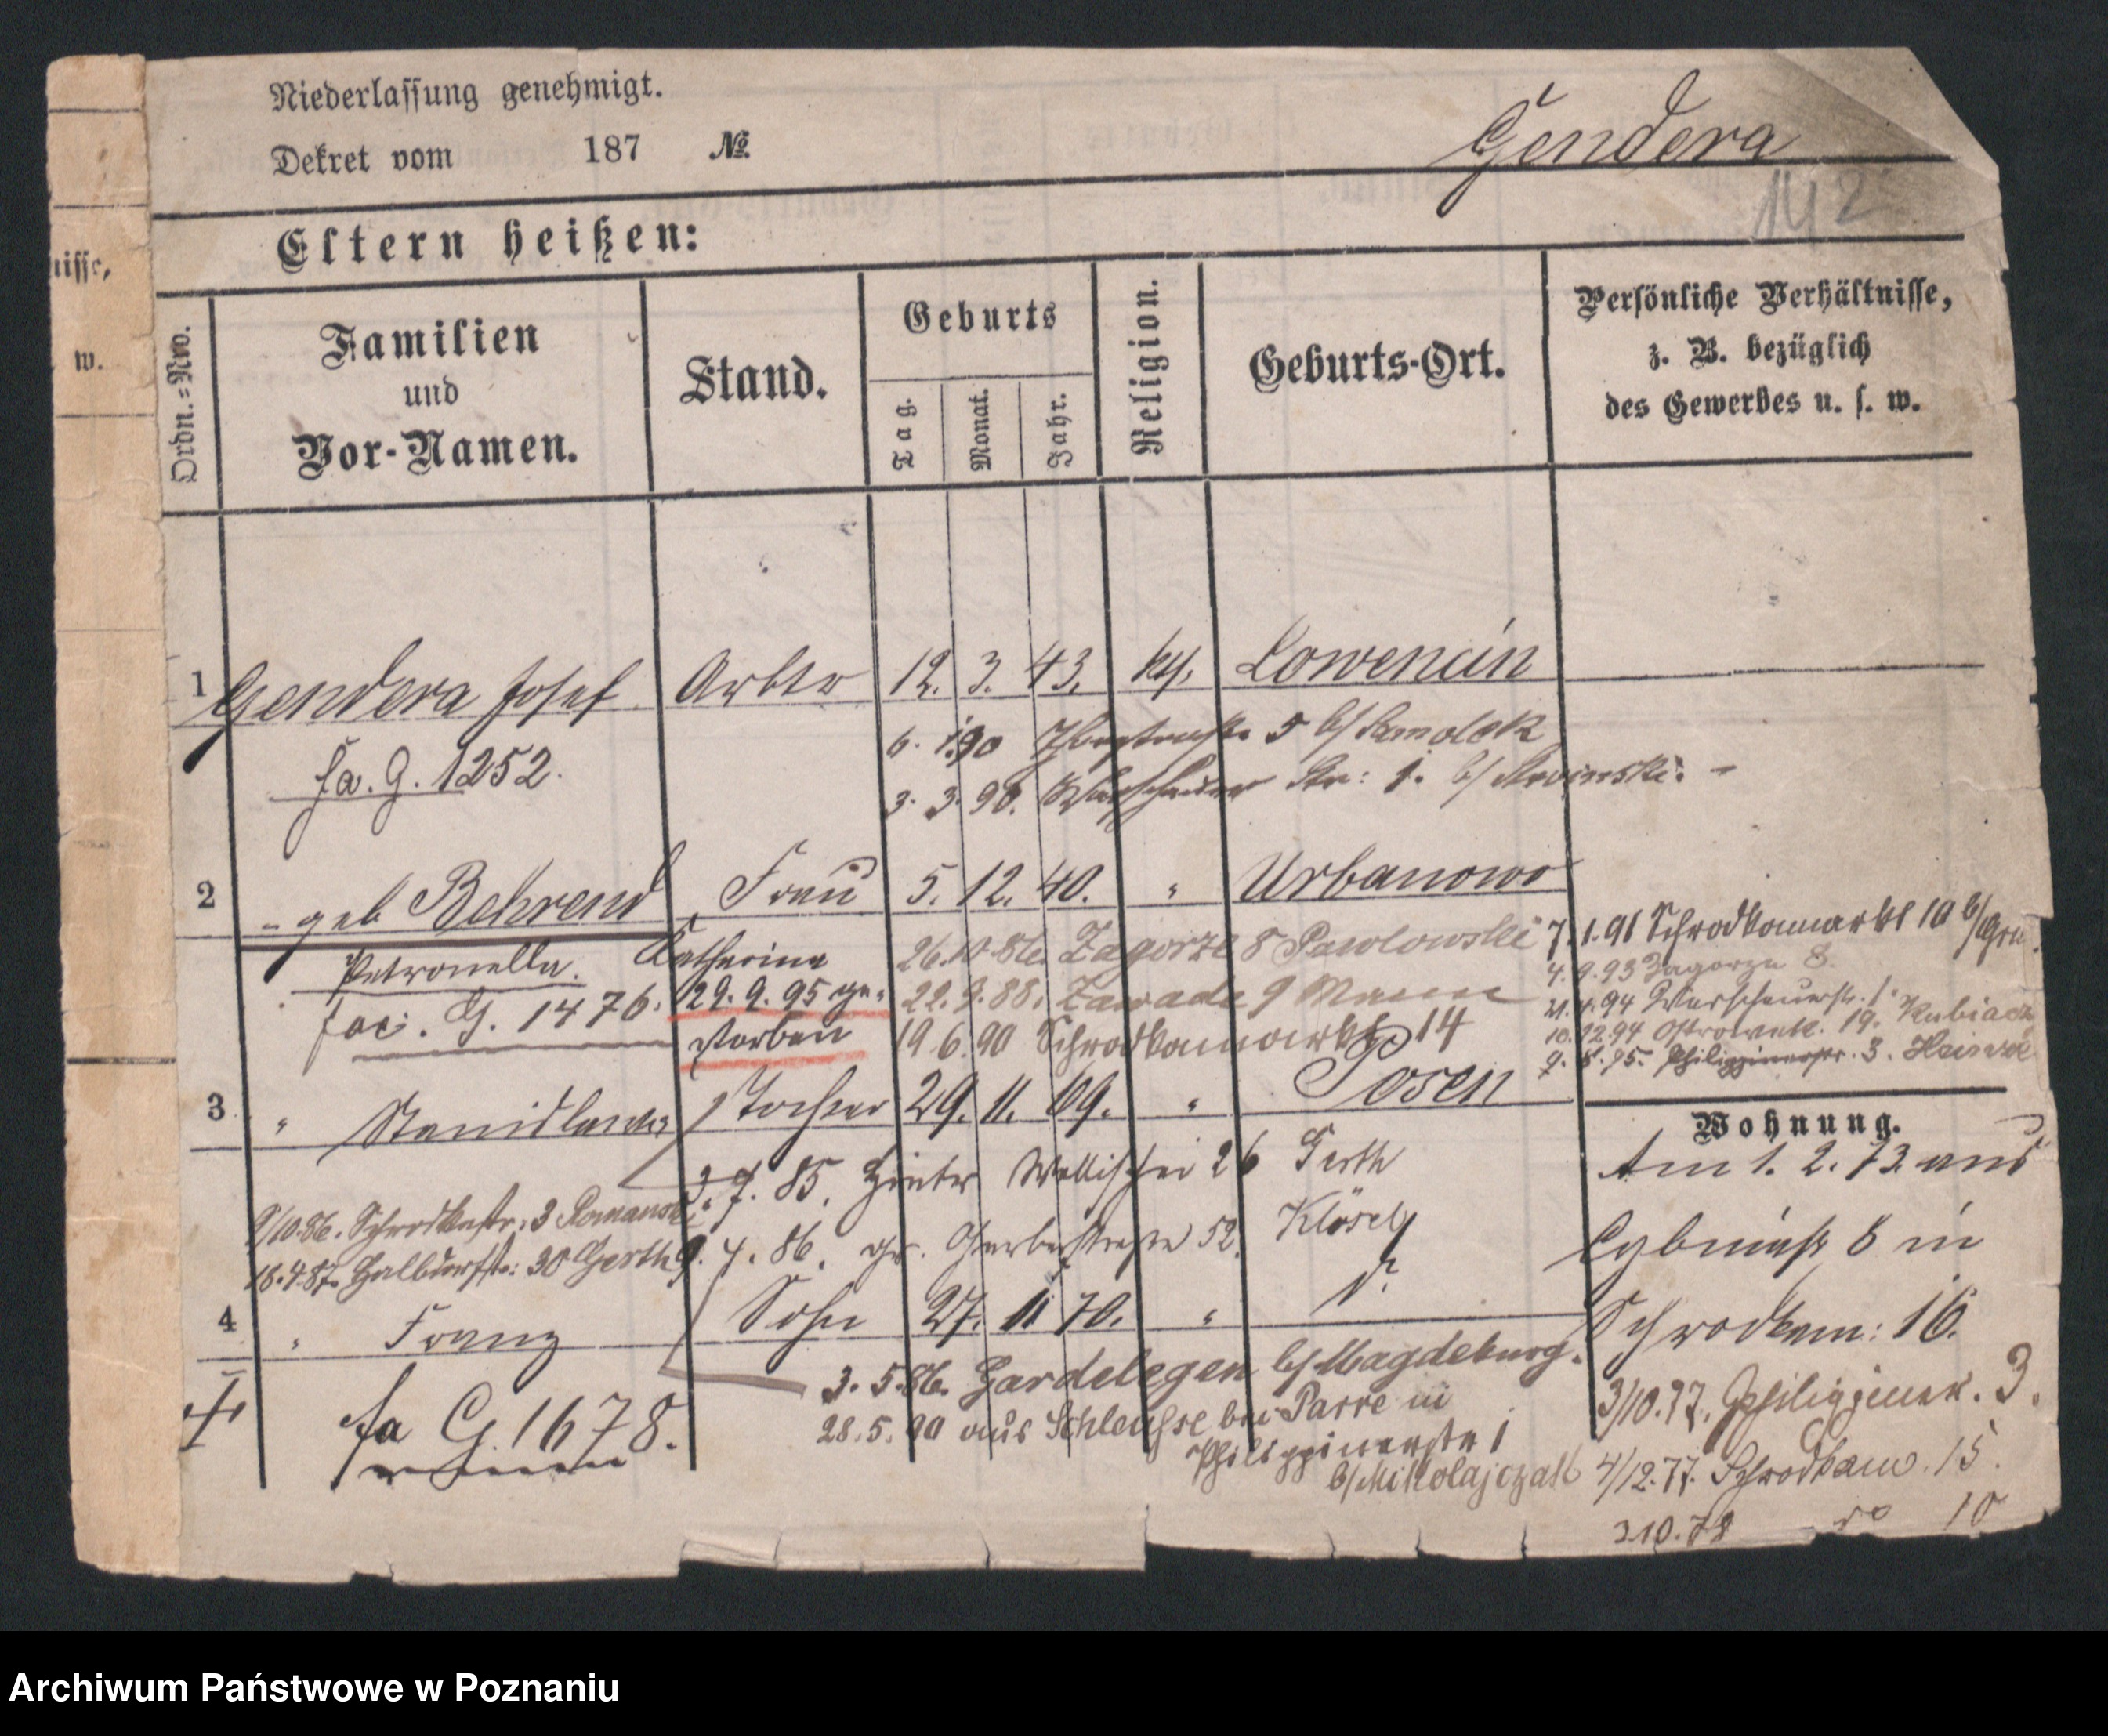 Niederlassung genehmigt.
Dekret vom 187 №
Gendera
142
Eltern heißen:
nisse,
w.
Ordn.=Nro.
Familien und Vor-Namen.
Stand.
Geburts
Tag.
Monat.
Jahr.
Religion.
Geburts-Ort.
Persönliche Verhältnisse,
z. B. bezüglich
des Gewerbes u. s. w.
1 Gendera Josef Arbtr 12. 3. 43. kth. Lowencin
fa. G. 1252.
6. 1. 90 5 b/ Samolek
3. 3. 90. Warschauer Str: 1. b/
2 - geb Behrend Frau 5. 12. 40. " Urbanowo
Petronella. Katharina
fac. G. 1476.
29. 9. 95 ge-
storben
26.10.86. Zagorze 8 Pawlowski
22.9.88. Zawade 9
19 6. 90 Schrodkamarkt 14
7.1.91 Schrodkamarkt 10 b/
4.9.93 Zagorze 8.
21.4.94 Warschauerstr. 1.
10.12.94 Ostrowek. 19. Kubiacz
9. 8. 95. Philippinerstr. 3. Heinze
3 " Stanislawa Tochter 29. 11. 69. " Posen
3. 7. 85. Hinter Wallischei 26 Gerth
9/10.86. Schrodkastr. 3 Romanski
9. 4. 86. gr. Gerberstraße 52. Klösel
18.4.87. Halbdorfstr: 30 Gerth
4 " Franz Sohn 27. 11 70. " d.
fa G. 1678.
3. 5. 86. Gardelegen b/ Magdeburg.
28. 5. 90 aus Schleuse bei Parre in
Philippinerstr 1
b/ Mikolajczak
Wohnung.
Am 1. 2. 73. aus
Cybinastr 8 in
Schrodkam: 16.
3/10.77. Philippiner. 3.
4/12.77. Schrodkam. 15.
3.10.78 do 10